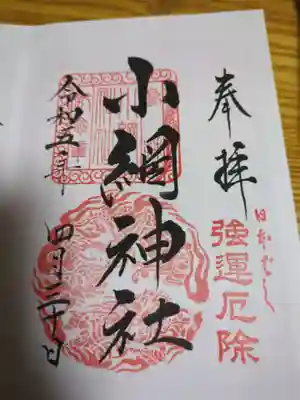 奉拝
日本ばし
強運厄除
小網神社
令和五年
四月二十日